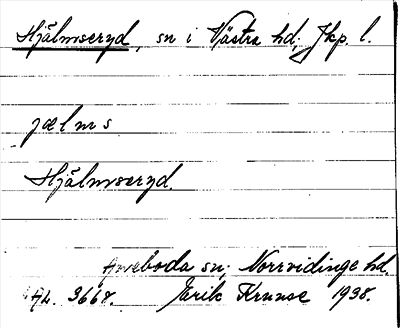 Hjälmseryd, sn i Västra hd, Jkp. l.
jælms
Hjälmseryd.
Aneboda sn, Norrvidinge hd.
AL. 3668. Jarik Krunse 1938.